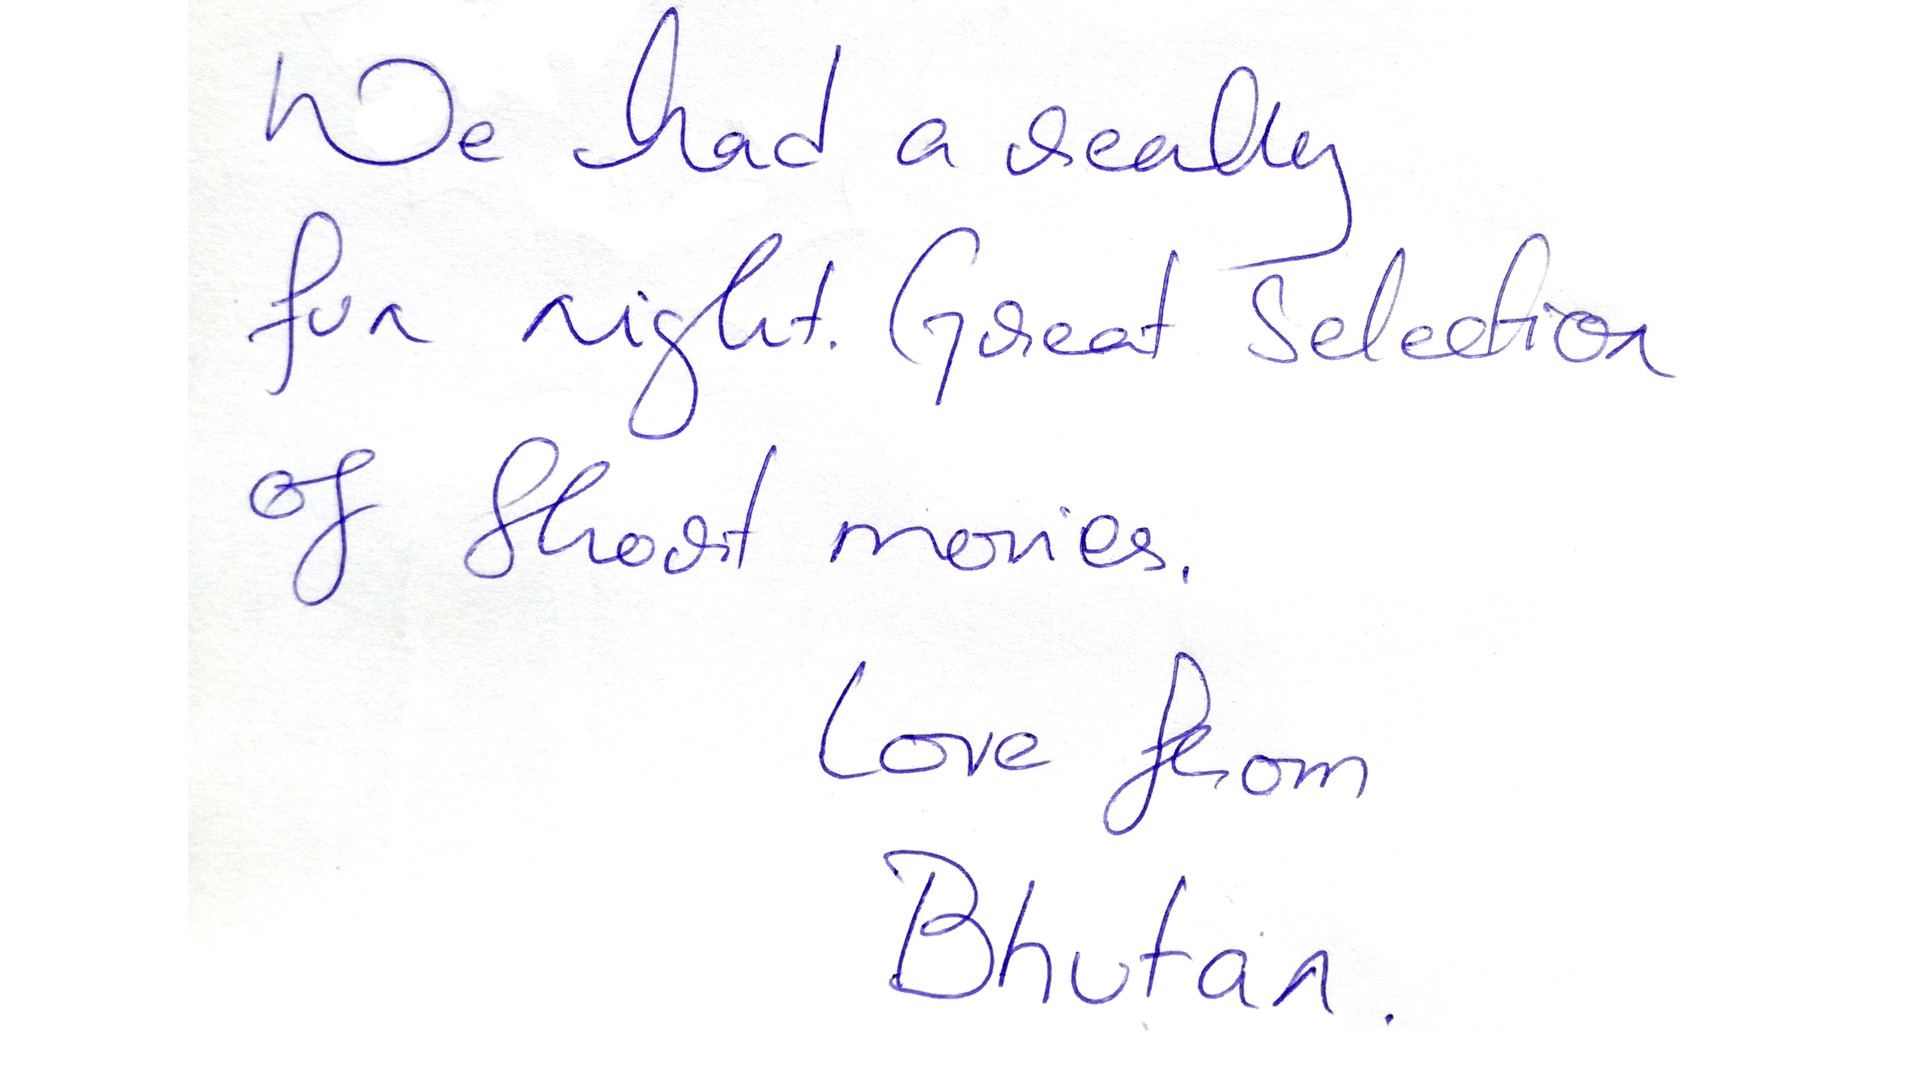 We had a really
fun night. Great Selection
of Short movies.
Love from
Bhutan.